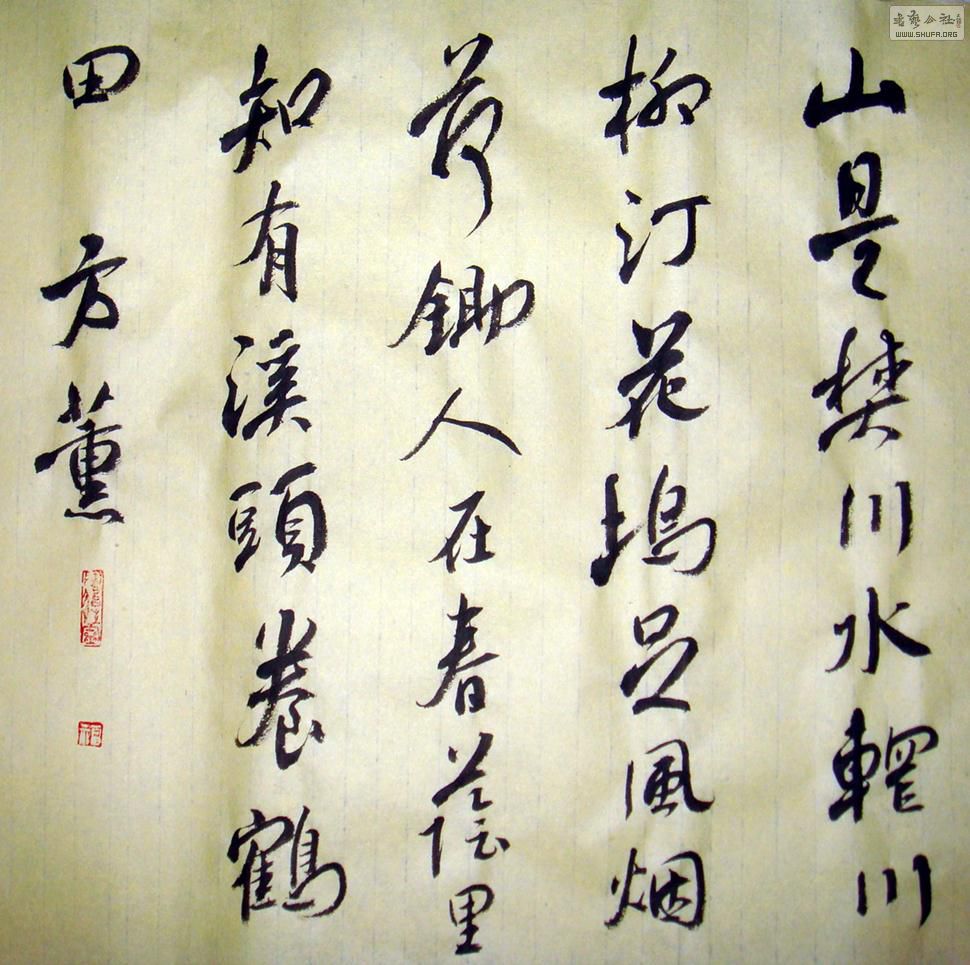 山是樊川水輞川
柳汀花塢足風烟
荷鋤人在春蔭里
知有溪頭養鶴
田 方薰
書藝公社
WWW.SHUFA.ORG